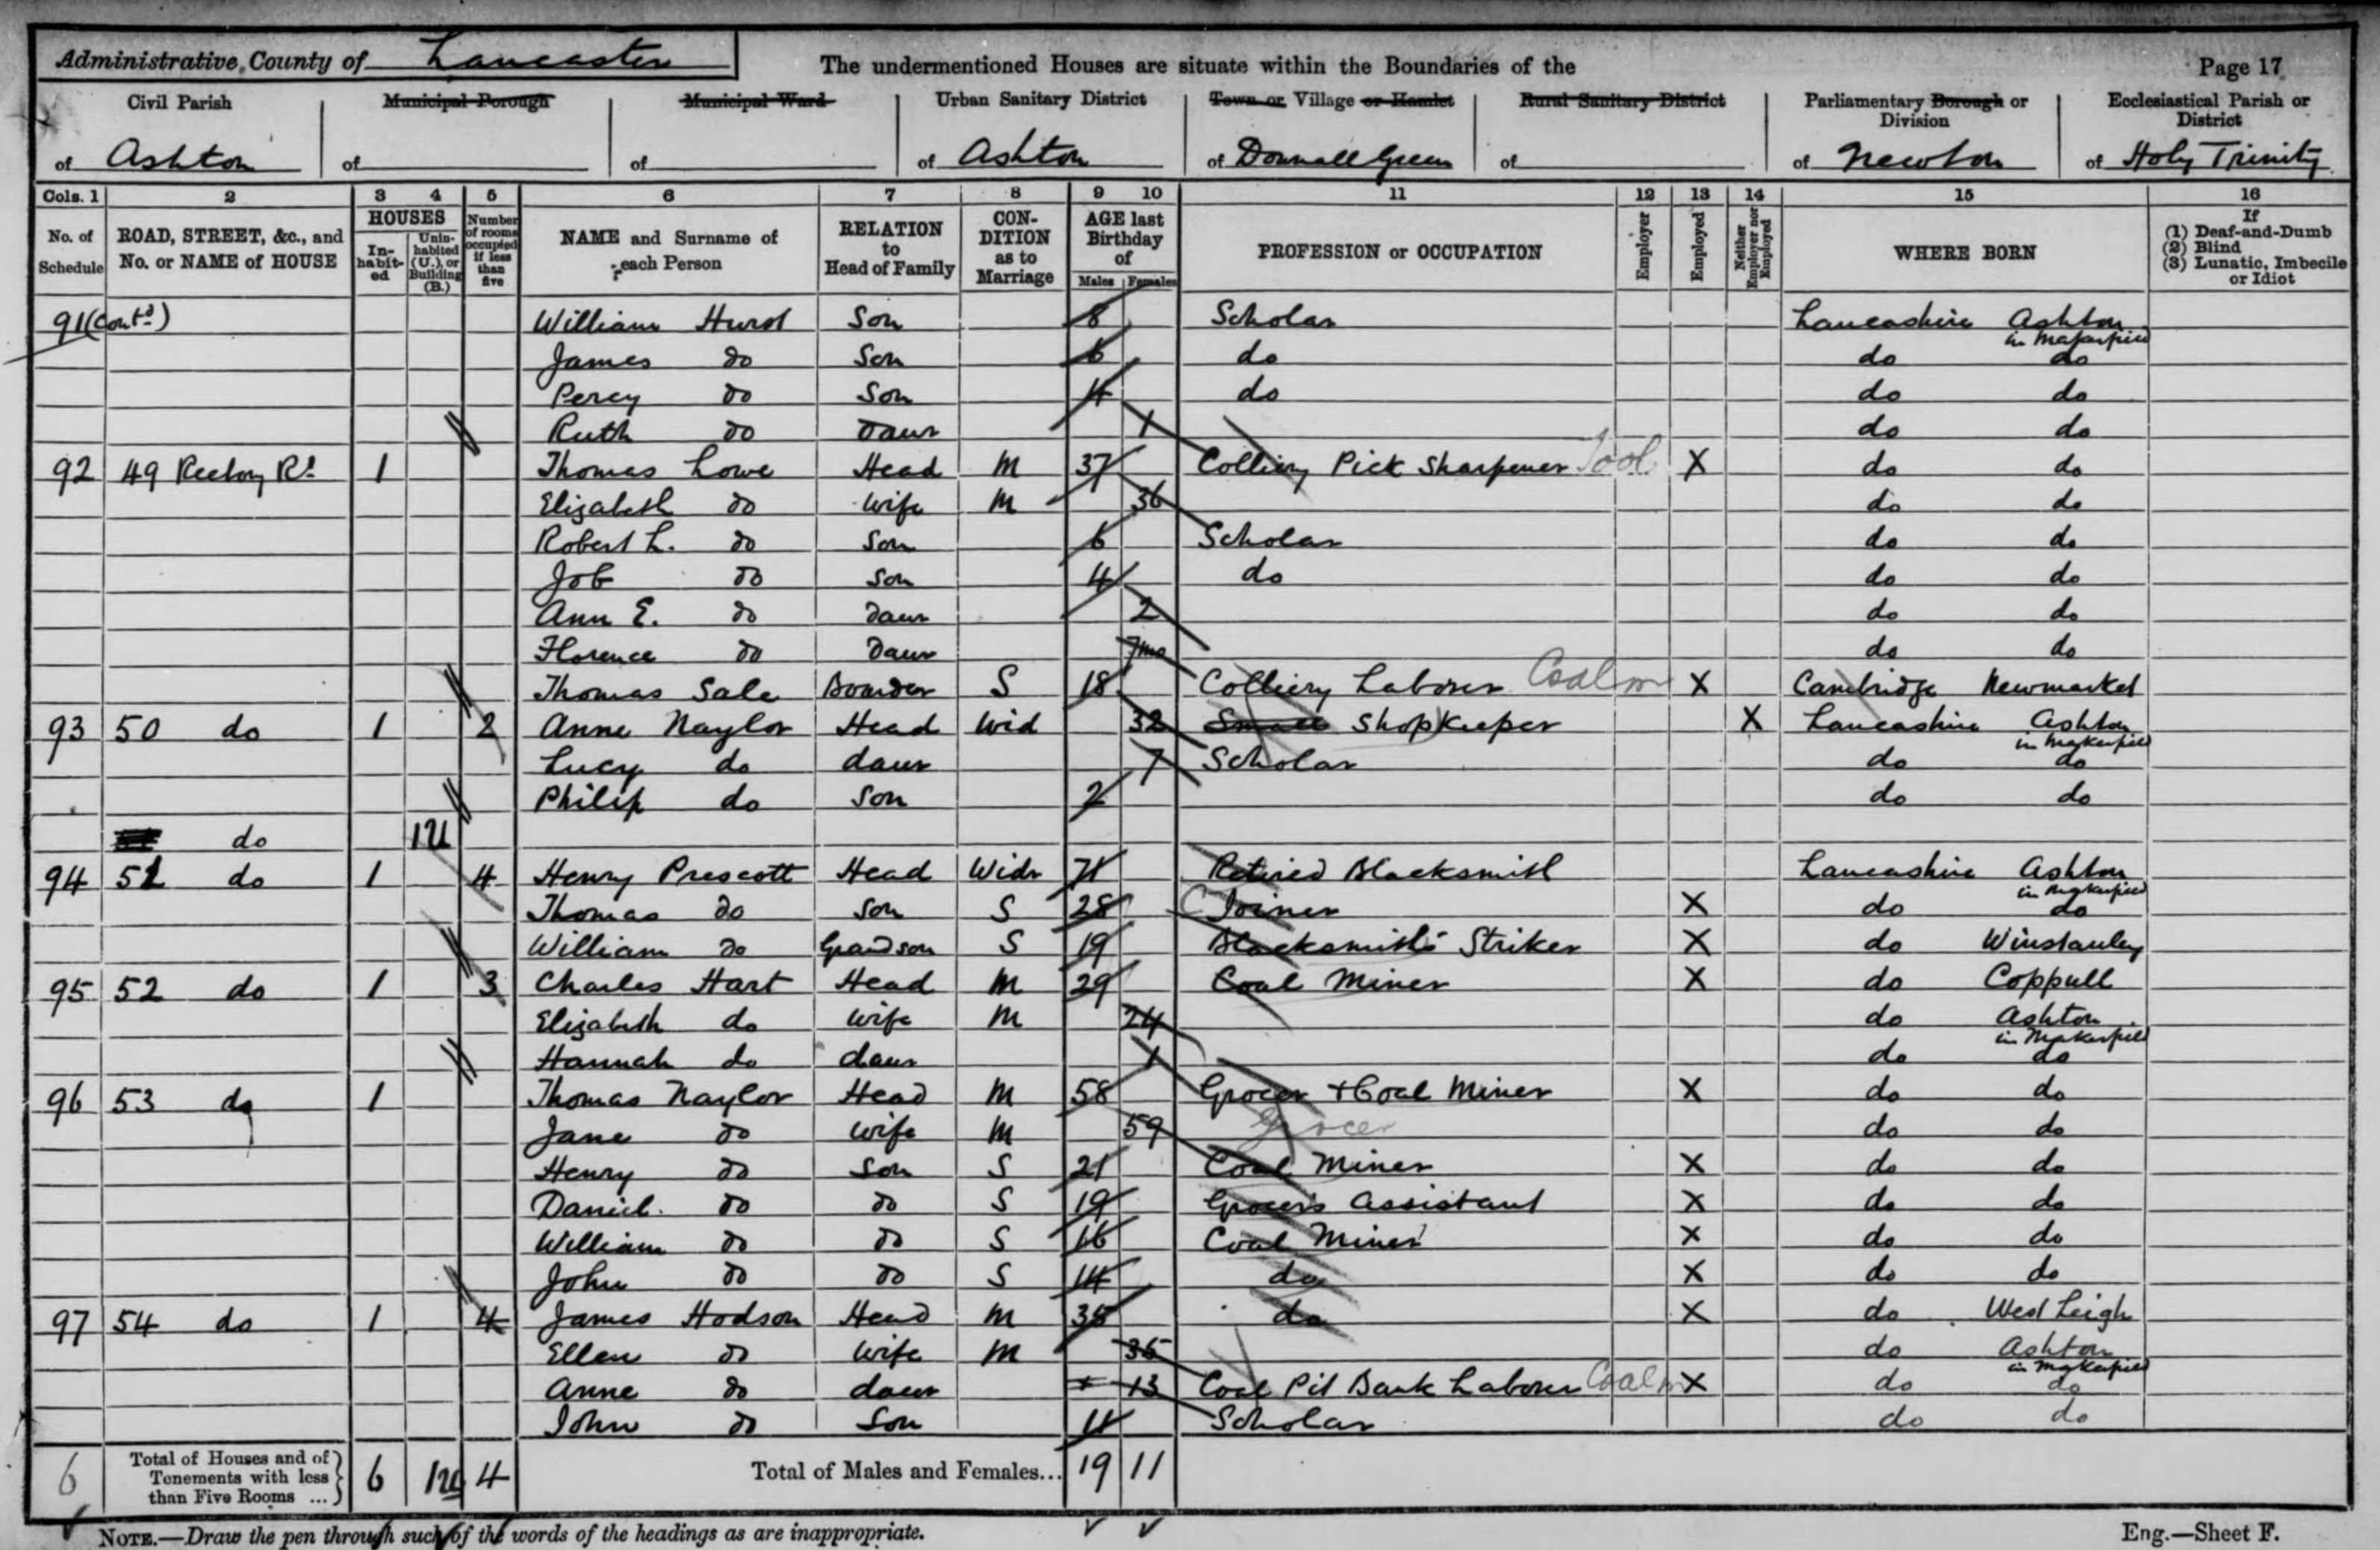 Administrative County of Lancaster The undermentioned Houses are situate within the Boundaries of the Page 17
Civil Parish Municipal Borough Municipal Ward Urban Sanitary District Town or Village or Hamlet Rural Sanitary District Parliamentary Borough or Division Ecclesiastical Parish or District
of Ashton of of of Ashton of Downall Green of of Newton of Holy Trinity
Cols. 1 2 3 4 5 6 7 8 9 10 11 12 13 14 15 16
No. of Schedule ROAD, STREET, &c., and No. or NAME of HOUSE HOUSES In-habit-ed Unin-habited (U.), or Building (B.) Number of rooms occupied if less than five NAME and Surname of each Person RELATION to Head of Family CON-DITION as to Marriage AGE last Birthday of Males Females PROFESSION or OCCUPATION Employer Employed Neither Employer nor Employed WHERE BORN If (1) Deaf-and-Dumb (2) Blind (3) Lunatic, Imbecile or Idiot
91 (Contd) William Hurst Son 8 Scholar Lancashire Ashton in Makerfield
James do Son 6 do do do
Percy do Son 4 do do do
Ruth do Daur 1 do do
92 49 Rectory Rd 1 Thomas Lowe Head M 37 Colliery Pick Sharpener Tool X do do
Elizabeth do Wife M 36 do do
Robert L. do Son 6 Scholar do do
Job do Son 4 do do do
Ann E. do Daur 2 do do
Florence do Daur 7mo do do
Thomas Sale Boarder S 18 Colliery Laborer Coal m X Cambridge Newmarket
93 50 do 1 2 Anne Naylor Head Wid 32 Small Shopkeeper X Lancashire Ashton in Makerfield
Lucy do daur 7 Scholar do do
Philip do Son 2 do do
do 1U
94 51 do 1 4 Henry Prescott Head Widr 71 Retired Blacksmith Lancashire Ashton in Makerfield
Thomas do Son S 28 Joiner X do do
William do Grandson S 19 Blacksmith's Striker X do Winstanley
95 52 do 1 3 Charles Hart Head M 29 Coal Miner X do Coppull
Elizabeth do Wife M 24 do Ashton in Makerfield
Hannah do daur 1 do do
96 53 do 1 Thomas Naylor Head M 58 Grocer + Coal Miner X do do
Jane do Wife M 59 Grocer do do
Henry do Son S 21 Coal Miner X do do
Daniel do do S 19 Grocer's Assistant X do do
William do do S 16 Coal Miner X do do
John do do S 14 do X do do
97 54 do 1 4 James Hodson Head M 35 do X do West Leigh
Ellen do Wife M 35 do Ashton in Makerfield
Anne do daur 13 Coal Pit Bank Laborer Coal m X do do
John do Son 11 Scholar do do
6 Total of Houses and of Tenements with less than Five Rooms ... 6 1U 4 Total of Males and Females... 19 11
NOTE.—Draw the pen through such of the words of the headings as are inappropriate. Eng.—Sheet F.